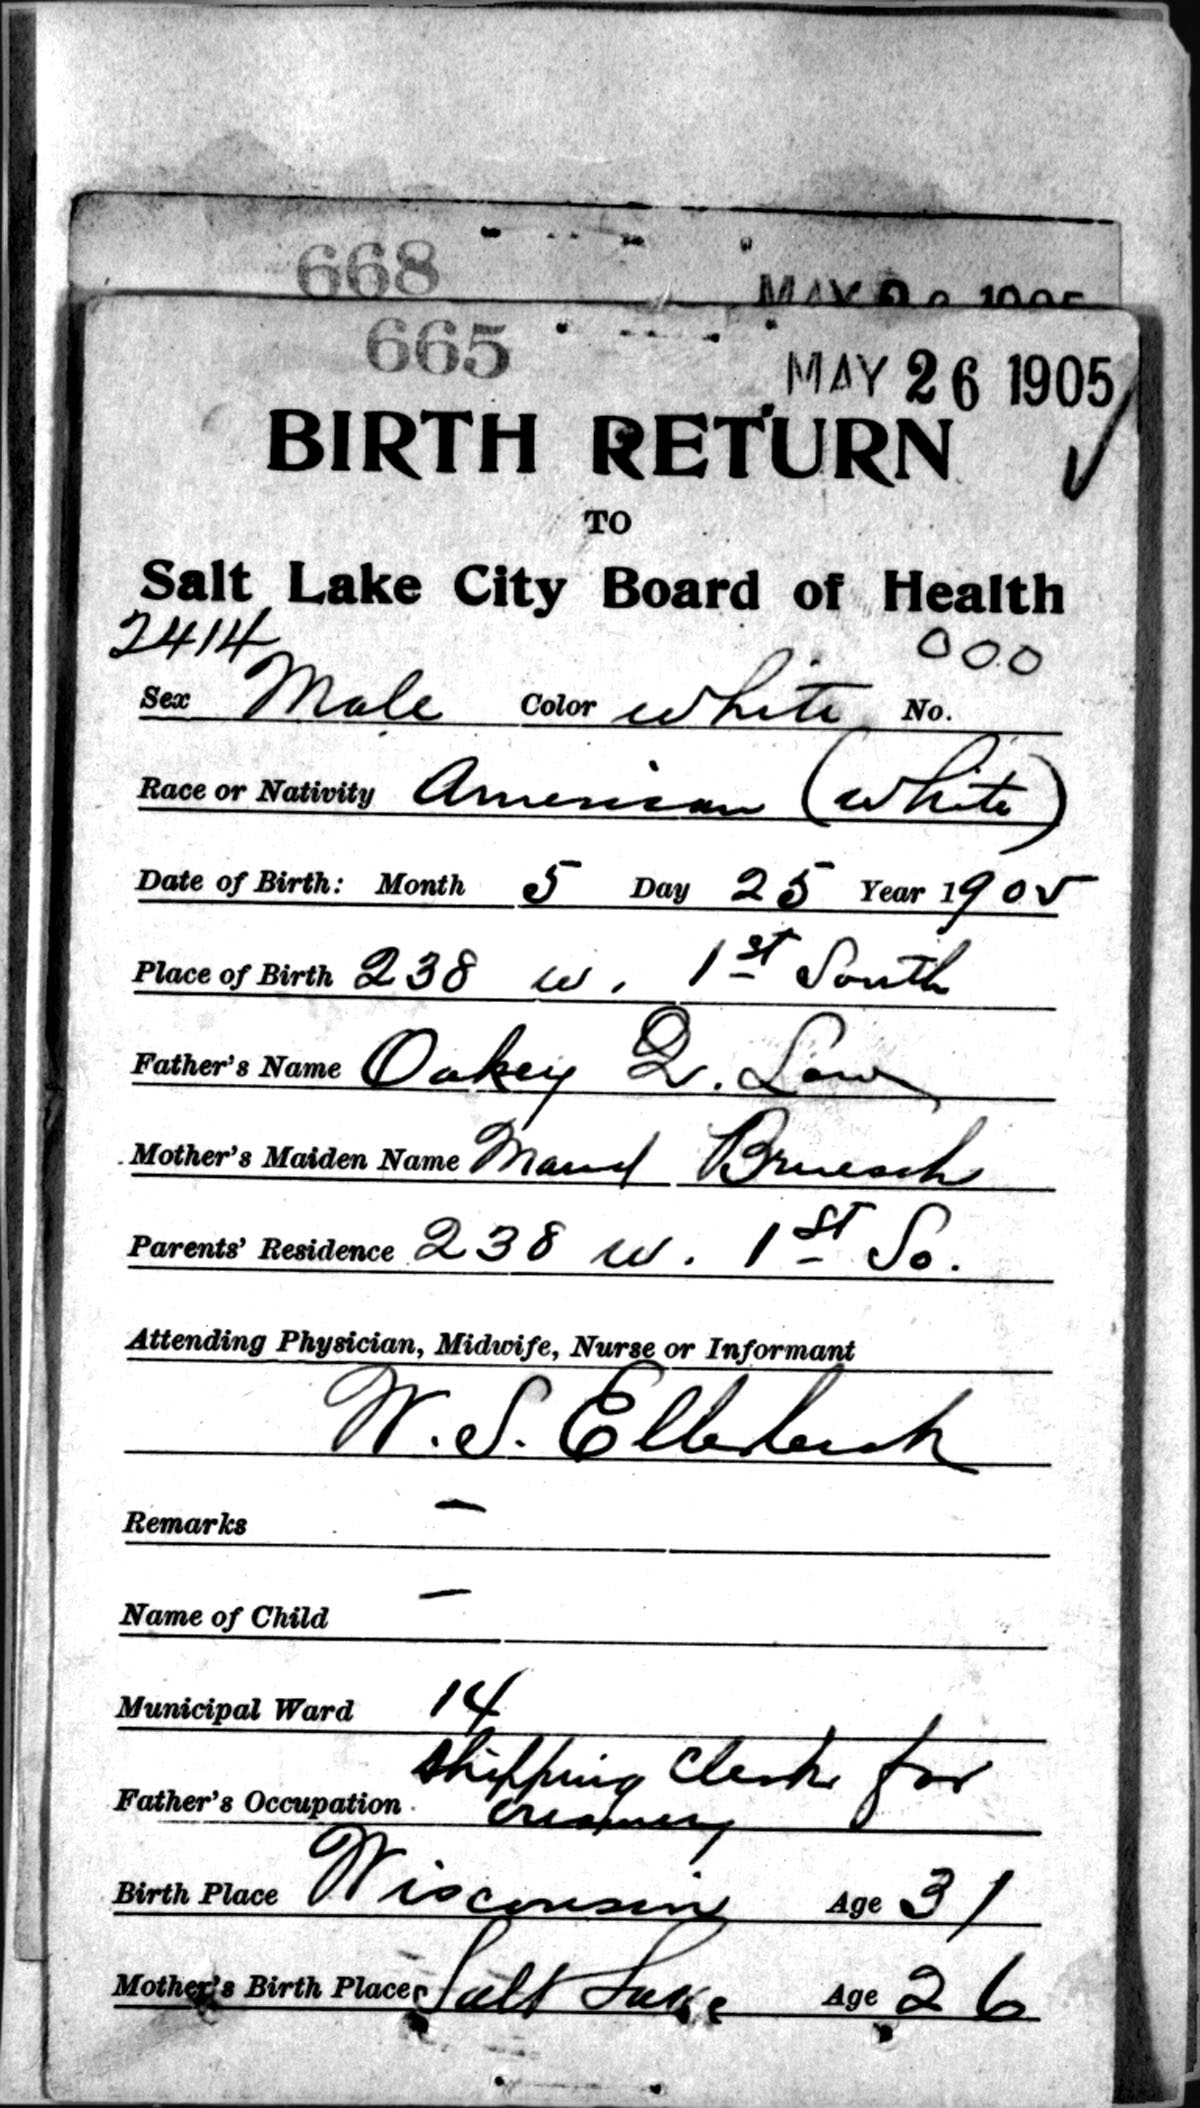 668
665
MAY 26 1905
BIRTH RETURN
TO
Salt Lake City Board of Health
2414 000
Sex Male Color white No.
Race or Nativity American (white)
Date of Birth: Month 5 Day 25 Year 1905
Place of Birth 238 w. 1st South
Father's Name Oakey Q. Low
Mother's Maiden Name Maud Bruesch
Parents' Residence 238 w. 1st So.
Attending Physician, Midwife, Nurse or Informant
W. S. Ellerbeck
Remarks –
Name of Child –
Municipal Ward 14
shipping clerk for
Father's Occupation creamery
Birth Place Wisconsin Age 31
Mother's Birth Place Salt Lake Age 26